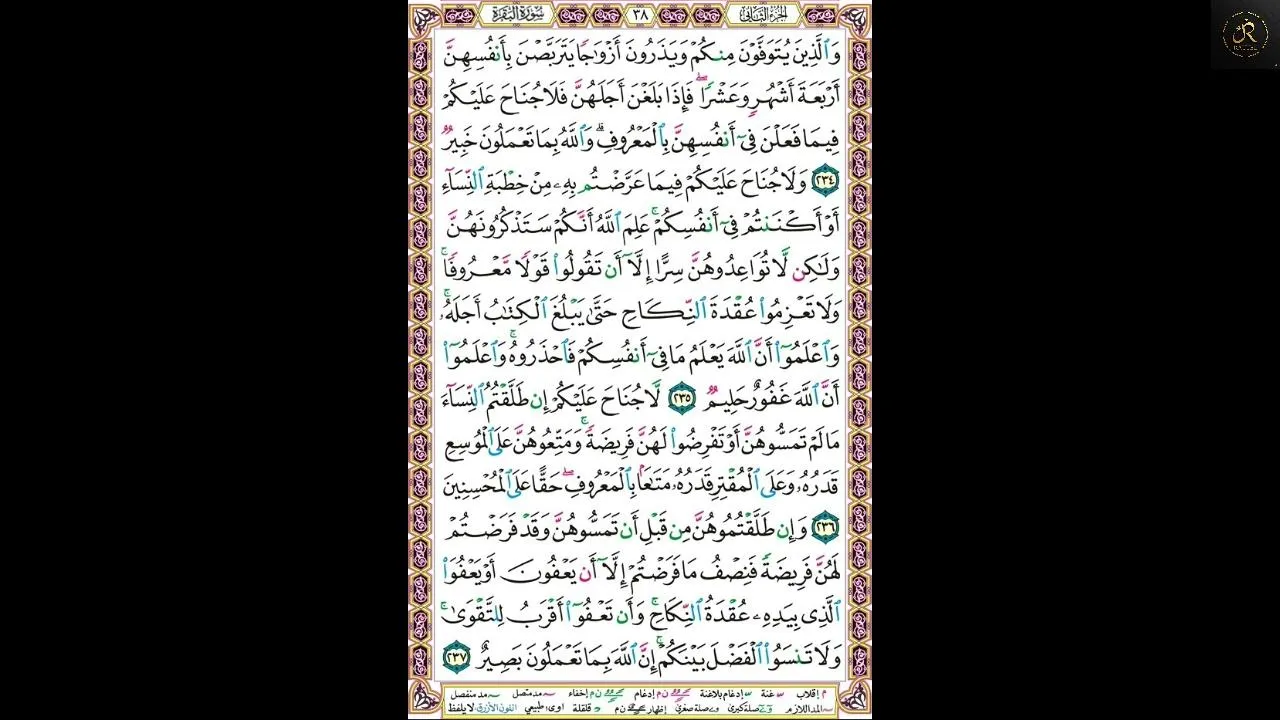 الجزء الثاني ٣٨ سورة البقرة
وَٱلَّذِينَ يُتَوَفَّوۡنَ مِنكُمۡ وَيَذَرُونَ أَزۡوَٰجٗا يَتَرَبَّصۡنَ بِأَنفُسِهِنَّ
أَرۡبَعَةَ أَشۡهُرٖ وَعَشۡرٗاۖ فَإِذَا بَلَغۡنَ أَجَلَهُنَّ فَلَا جُنَاحَ عَلَيۡكُمۡ
فِيمَا فَعَلۡنَ فِيٓ أَنفُسِهِنَّ بِٱلۡمَعۡرُوفِۗ وَٱللَّهُ بِمَا تَعۡمَلُونَ خَبِيرٞ
٢٣٤ وَلَا جُنَاحَ عَلَيۡكُمۡ فِيمَا عَرَّضۡتُم بِهِۦ مِنۡ خِطۡبَةِ ٱلنِّسَآءِ
أَوۡ أَكۡنَنتُمۡ فِيٓ أَنفُسِكُمۡۚ عَلِمَ ٱللَّهُ أَنَّكُمۡ سَتَذۡكُرُونَهُنَّ
وَلَٰكِن لَّا تُوَاعِدُوهُنَّ سِرًّا إِلَّآ أَن تَقُولُواْ قَوۡلٗا مَّعۡرُوفٗاۚ
وَلَا تَعۡزِمُواْ عُقۡدَةَ ٱلنِّكَاحِ حَتَّىٰ يَبۡلُغَ ٱلۡكِتَٰبُ أَجَلَهُۥۚ
وَٱعۡلَمُوٓاْ أَنَّ ٱللَّهَ يَعۡلَمُ مَا فِيٓ أَنفُسِكُمۡ فَٱحۡذَرُوهُۚ وَٱعۡلَمُوٓاْ
أَنَّ ٱللَّهَ غَفُورٌ حَلِيمٞ ٢٣٥ لَّا جُنَاحَ عَلَيۡكُمۡ إِن طَلَّقۡتُمُ ٱلنِّسَآءَ
مَا لَمۡ تَمَسُّوهُنَّ أَوۡ تَفۡرِضُواْ لَهُنَّ فَرِيضَةٗۚ وَمَتِّعُوهُنَّ عَلَى ٱلۡمُوسِعِ
قَدَرُهُۥ وَعَلَى ٱلۡمُقۡتِرِ قَدَرُهُۥ مَتَٰعَۢا بِٱلۡمَعۡرُوفِۖ حَقًّا عَلَى ٱلۡمُحۡسِنِينَ
٢٣٦ وَإِن طَلَّقۡتُمُوهُنَّ مِن قَبۡلِ أَن تَمَسُّوهُنَّ وَقَدۡ فَرَضۡتُمۡ
لَهُنَّ فَرِيضَةٗ فَنِصۡفُ مَا فَرَضۡتُمۡ إِلَّآ أَن يَعۡفُونَ أَوۡ يَعۡفُوَاْ
ٱلَّذِي بِيَدِهِۦ عُقۡدَةُ ٱلنِّكَاحِۚ وَأَن تَعۡفُوٓاْ أَقۡرَبُ لِلتَّقۡوَىٰۚ
وَلَا تَنسَوُاْ ٱلۡفَضۡلَ بَيۡنَكُمۡۚ إِنَّ ٱللَّهَ بِمَا تَعۡمَلُونَ بَصِيرٌ ٢٣٧
م إقلاب غنة إدغام بلاغنة ن م إدغام ن م إخفاء مد متصل مد منفصل
المد اللازم صلة كبرى صلة صغرى إظهار ن م قلقلة طبيعي اللون الأزرق لا يلفظ